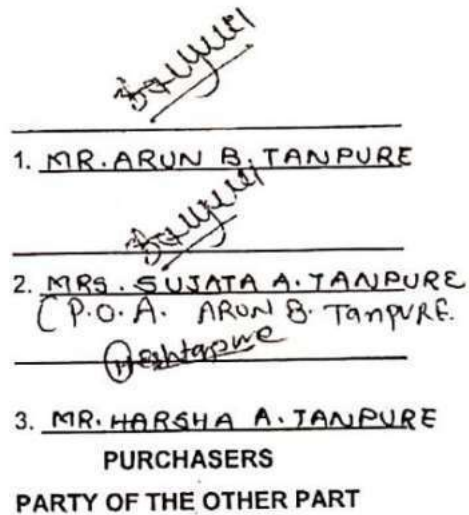 1. MR. ARUN B. TANPURE
2. MRS. SUJATA A. TANPURE
(P.O.A. ARUN B. TANPURE.
3. MR. HARSHA A. TANPURE
PURCHASERS
PARTY OF THE OTHER PART